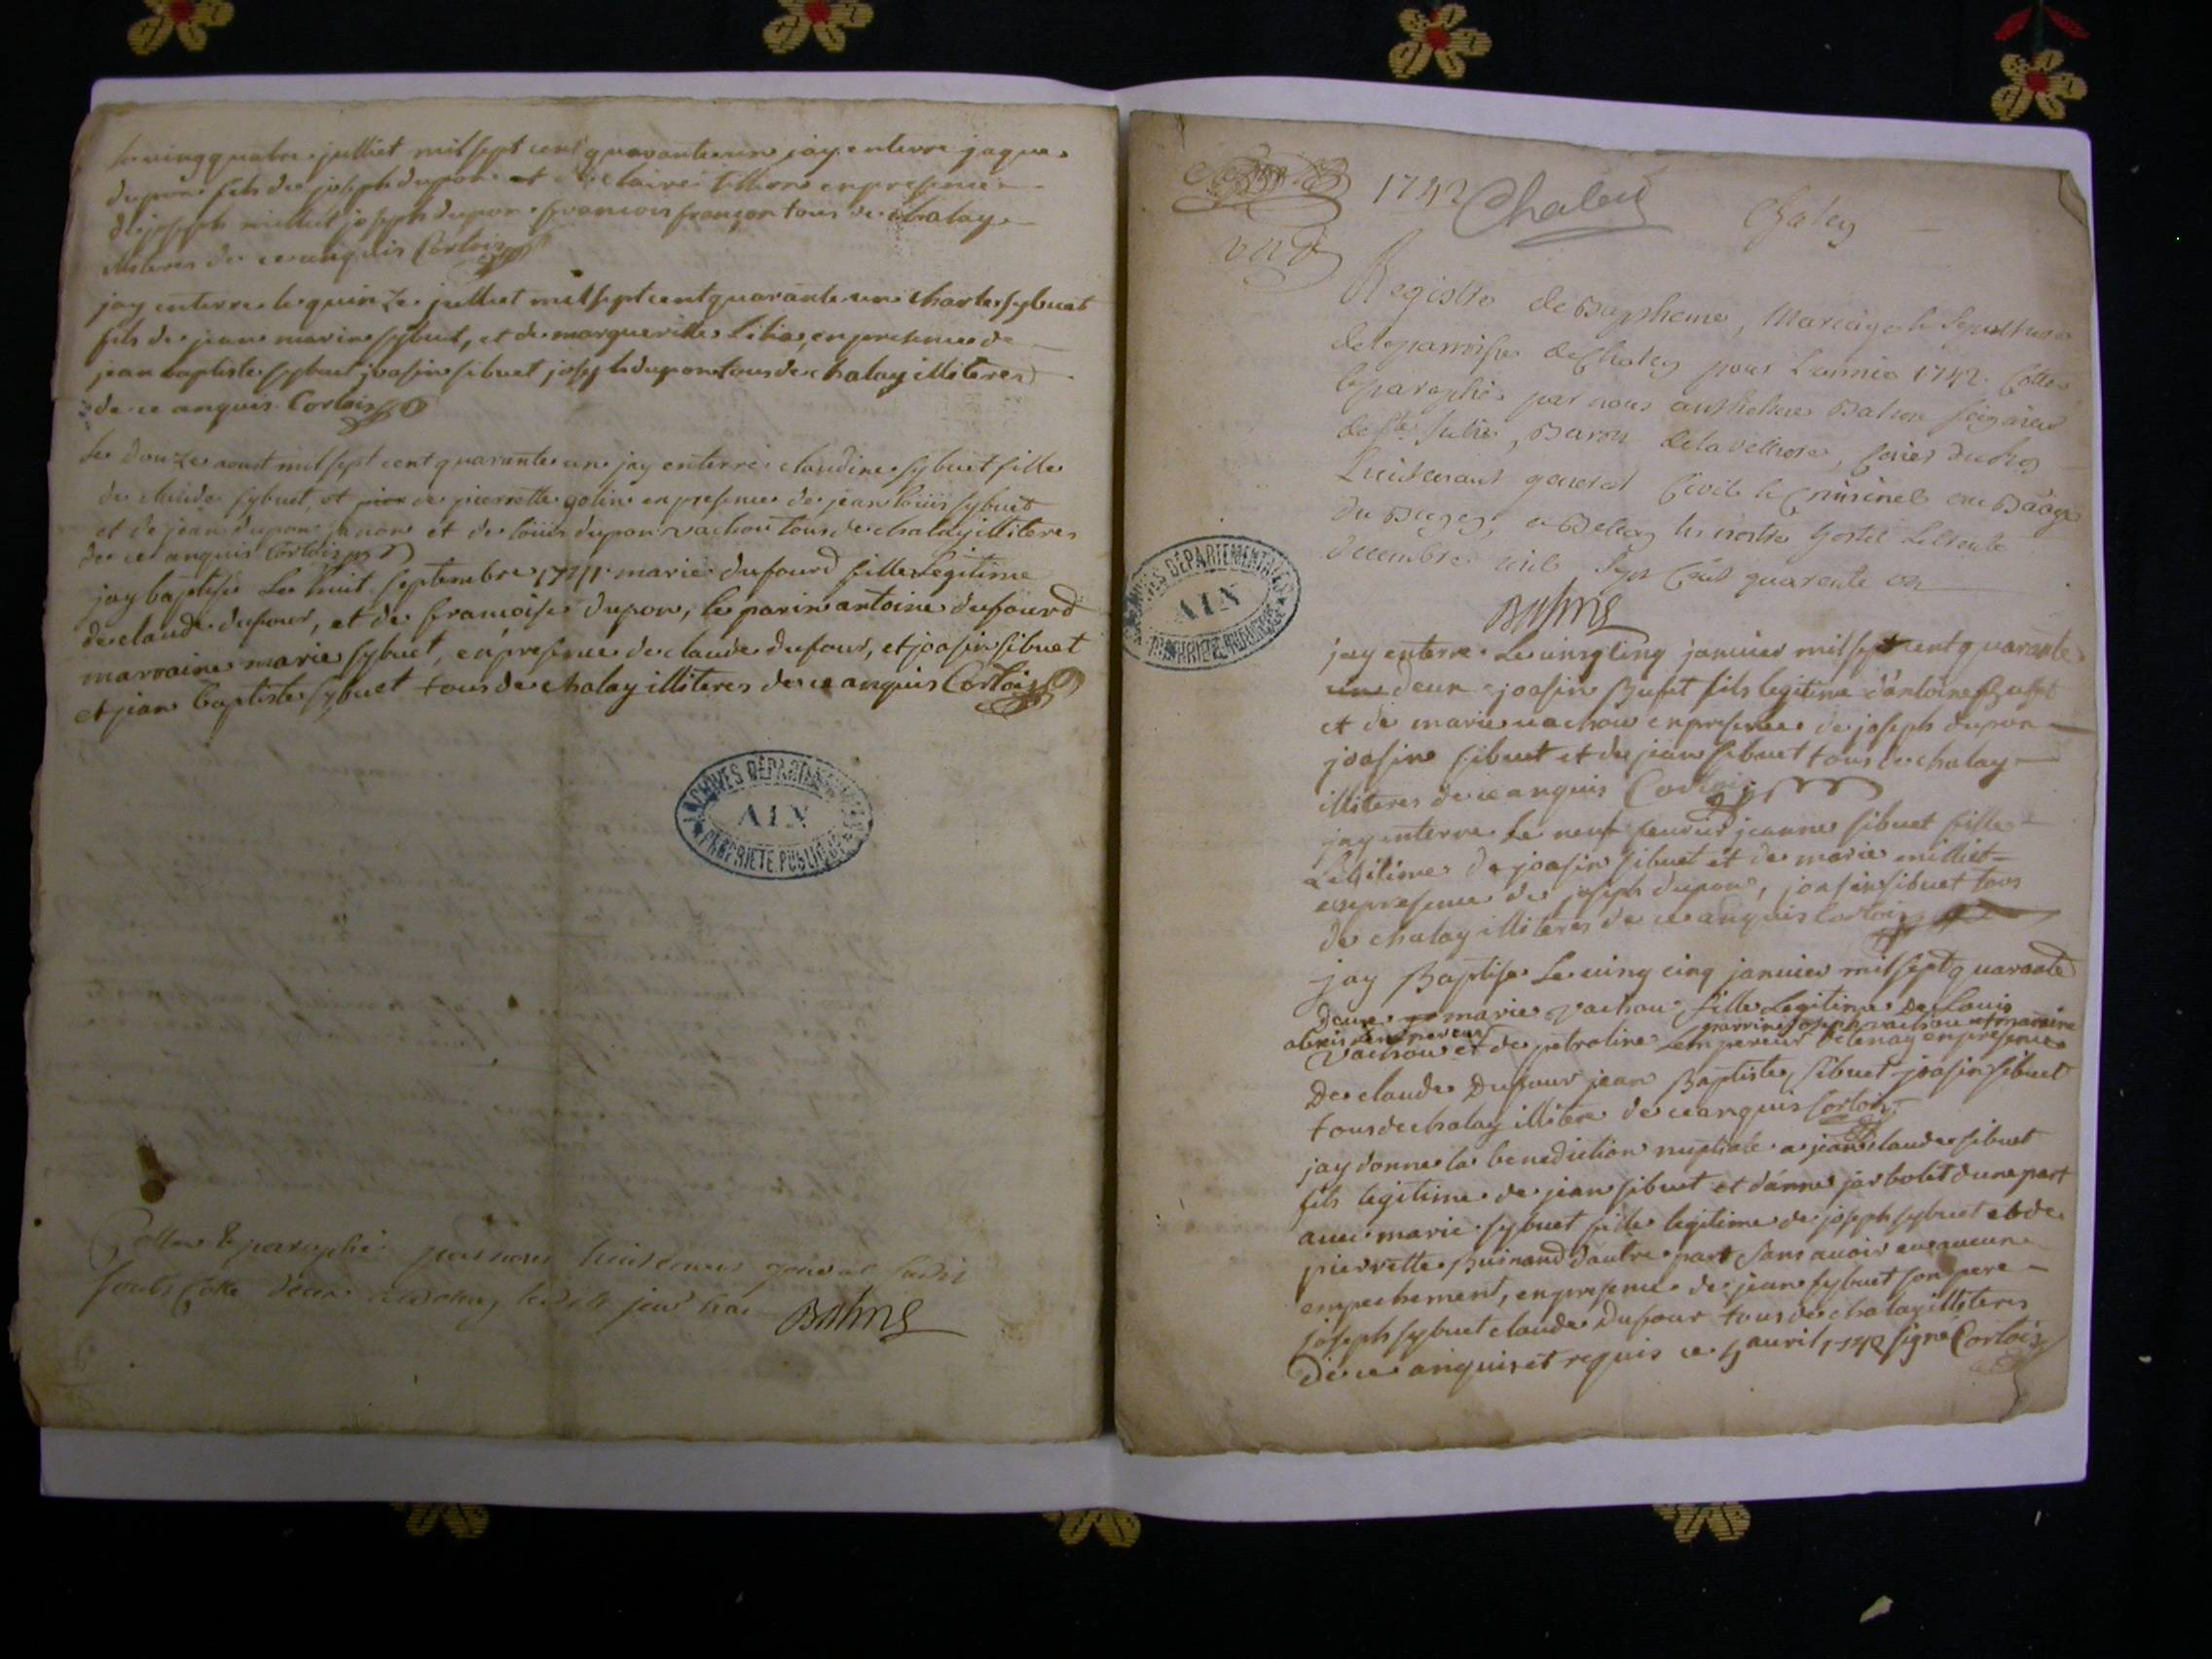 le vingquatre julliet mil sept cent quarante un jay enterre jaque
dupon fils de joseph dupon et de claire tillion en presence
de joseph milliet joseph dupon francois françon tous de chalay
illiteres de ce anquis Cortois
jay enterre le quinze julliet mil sept cent quarante un charle sybuet
fils de jean marin sybuet, et de margueritte en presence de
jean baptiste sybuet joasin sibuet joseph dupon tous de chalay illiteres
de ce anquis Cortois
Le douze aoust mil sept cent quarante un jay enterre claudine sybuet fille
de claude sybuet, et de pierrette golin en presence de jean louis sybuet
et de jean dupon et de louis dupon vachou tous de chalay illiteres
de ce anquis Cortois
jay baptise Le huit septembre 1741 marie dufourd fille Legitime
de claude dufour, et de francoise dupon, le parin antoine dufourd
marraine marie sybuet, en presence de claude dufour, et joasin sibuet
et jean baptiste sybuet tous de chalay illiteres de ce anquis Cortois
ARCHIVES DÉPARTEMENTALES
AIN
PROPRIÉTÉ PUBLIQUE
Cotté & paraphé par nous Lieutenant general susdit
soubs Cotte deux a Belley ledit jour
Balme
1742 Chaley Chaley
Registre de Baptheme, Mariage & Sepulture
de la parroisse de Chaley pour L'année 1742 Cotté
& paraphé par nous anthelme Balme seigneur
de Ste Julie, Baron de la velliere, Coner du Roy
Lieutenant general Civil & Criminel au Bailliage
du Bugey, a Belley en nostre hostel Le trente
decembre mil sept Cent quarante un
Balme
ARCHIVES DÉPARTEMENTALES
AIN
PROPRIÉTÉ PUBLIQUE
jay enterre Le vingt cinq janvier mil sept cent quarante
deux joasin Bufet fils legitime d'antoine Buffet
et de marie vachou en presence de joseph dupon
joasin sibuet et de jean sibuet tous de chalay
illiteres de ce anquis Cortois
jay enterre Le neuf feuvrier jeanne sibuet fille
Legitime de joasin sibuet et de marie milliet
en presence de joseph dupon, joasin sibuet tous
de chalay illiteres de ce anquis Cortois
jay Baptise Le ving cinq janvier mil sept quarante
deux marie vachou fille Legitime De Louis
parrin joseph vachou et maraine
alexis Lempereur
vachou et de petroline Lempereur en presence
De claude Dufour jean Baptiste sibuet joasin sibuet
tous de chalay illitere de ce anquis Cortois
jay donne la benediction nuptiale a jean claude sibuet
fils legitime de jean sibuet et d'anne jarbolet dune part
avec marie sybuet fille legitime de joseph sybuet et de
pierrette Buinand dautre part sans avoir eu aucun
empechement, en presence de jean sybuet son pere
joseph sybuet claude Dufour tous de chalay illiteres
de ce anquis et requis ce 5 avril 1742 signé Cortois